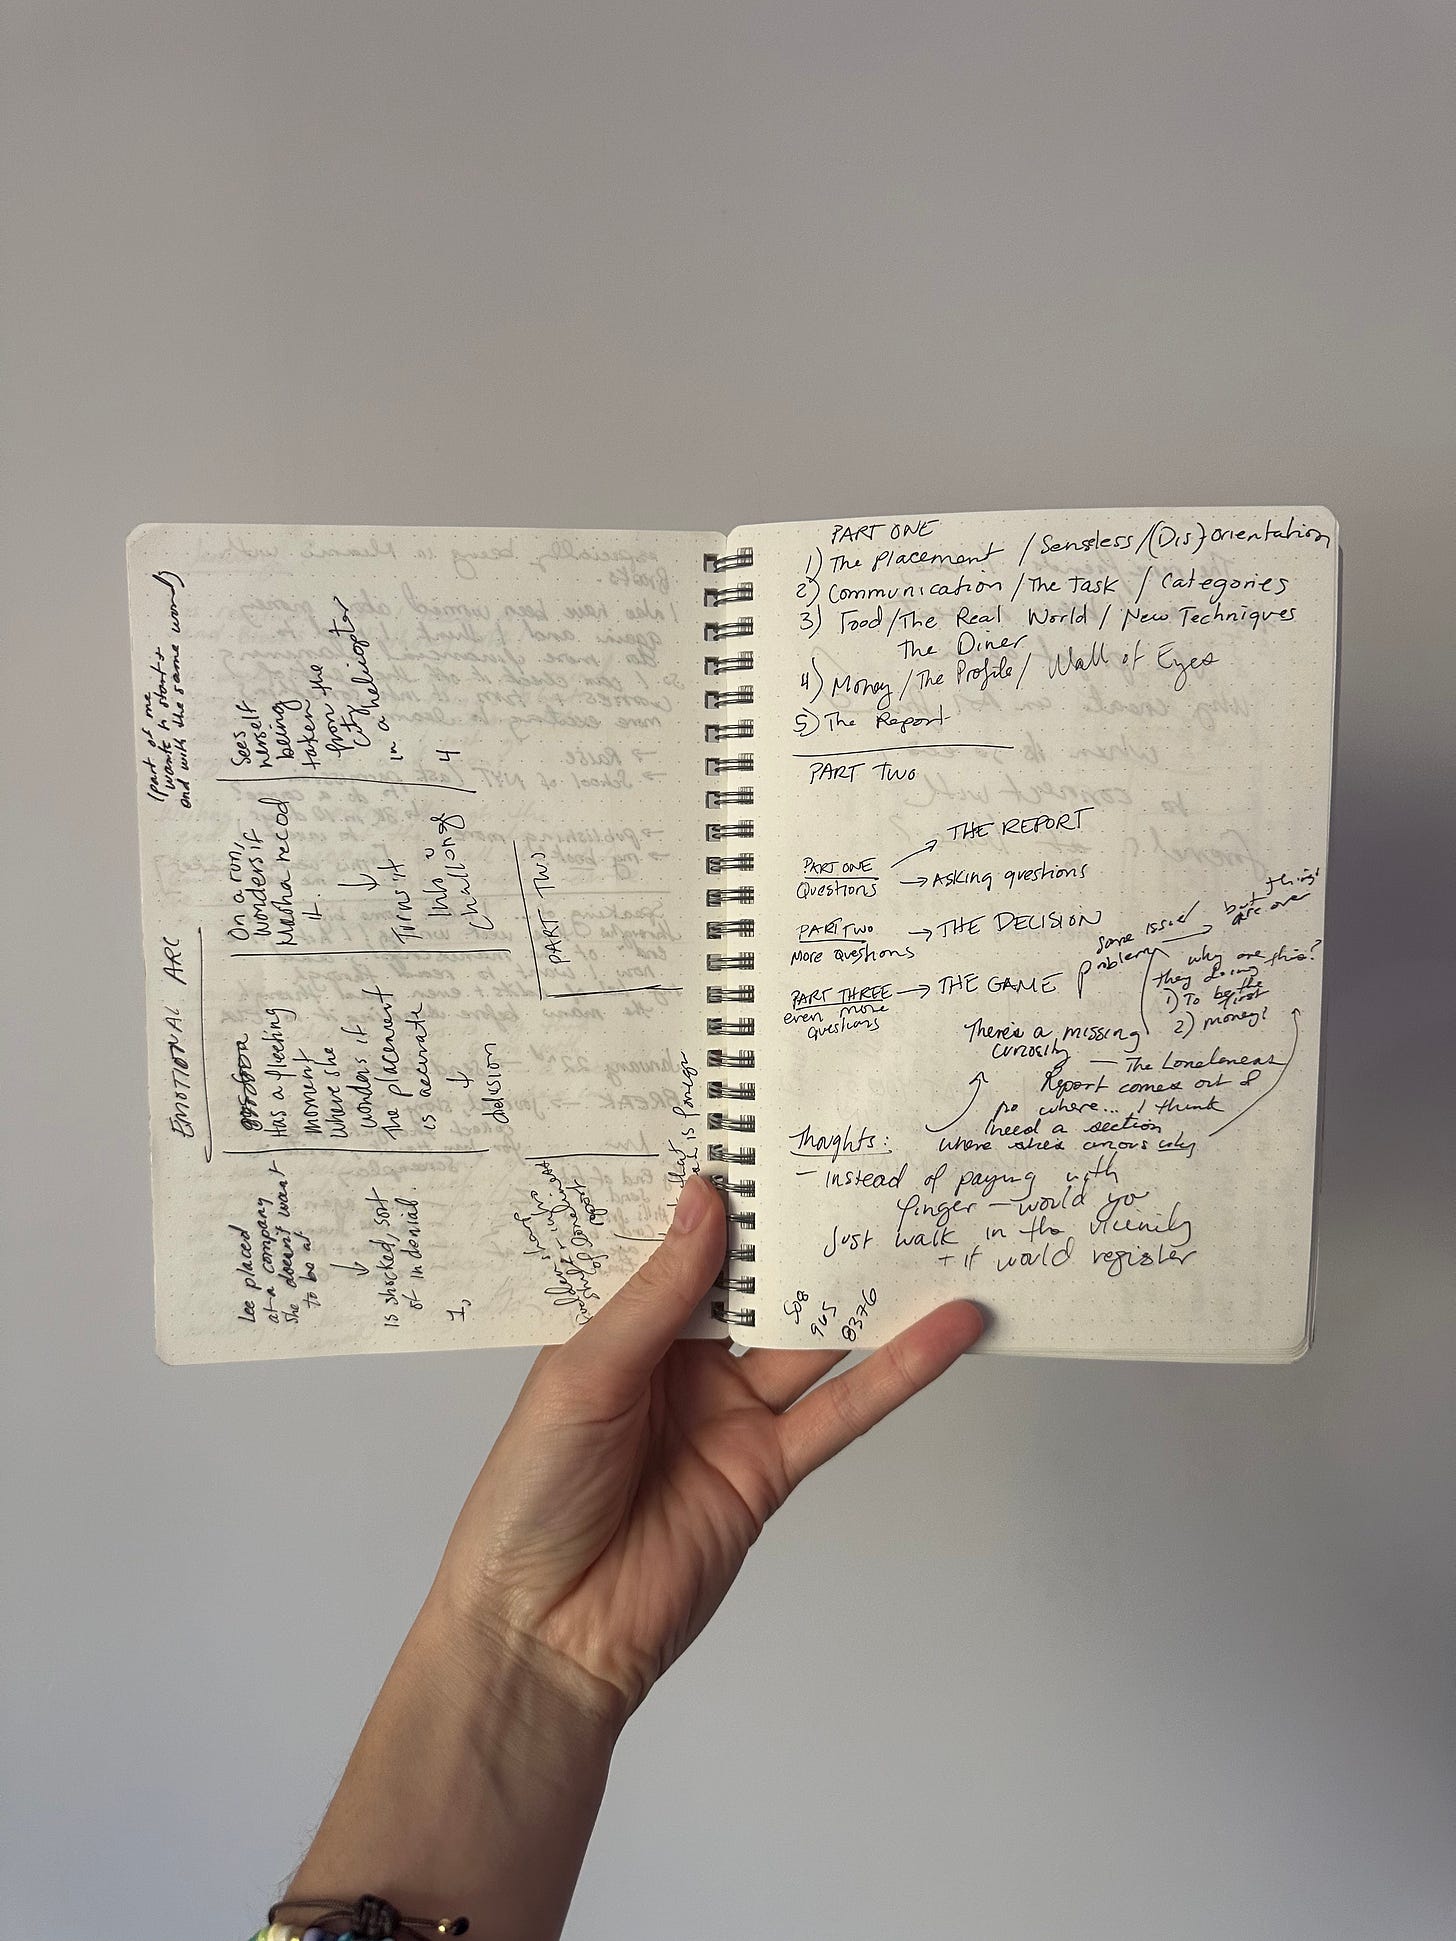 EMOTIONAL ARC
(part of me
wants to start +
end with the same word)
Lee placed
at a company
she doesn't want
to be at
↓
is shocked, sort
of in denial.
1,
has a fleeting
moment
where she
wonders if
the placement
is accurate
↓
delusion
On a run,
wonders if
Masha
it.
↓
Turns it
into a
challenge
Sees
herself
being
taken
from the
city
in a helicopter
4
PART TWO
of loneliness
report
PART ONE
1) The Placement / Senseless / (Dis)orientation
2) Communication / The Task / Categories
3) Food / The Real World / New Techniques
the Diner
4) Money / The Profile / Wall of Eyes
5) The Report
PART TWO
THE REPORT
PART ONE
Questions → Asking questions
PART TWO → THE DECISION
More Questions
PART THREE → THE GAME
even more
questions
same issue/
problem
but things
are over
why are
they doing this?
1) To be the
first
2) money?
There's a missing
curiosity — The Loneliness
Report comes out of
no where... I think
I need a section
where she's curious why
Thoughts:
- instead of paying with
finger — would you
just walk in the vicinity
+ it would register
508
965
8376